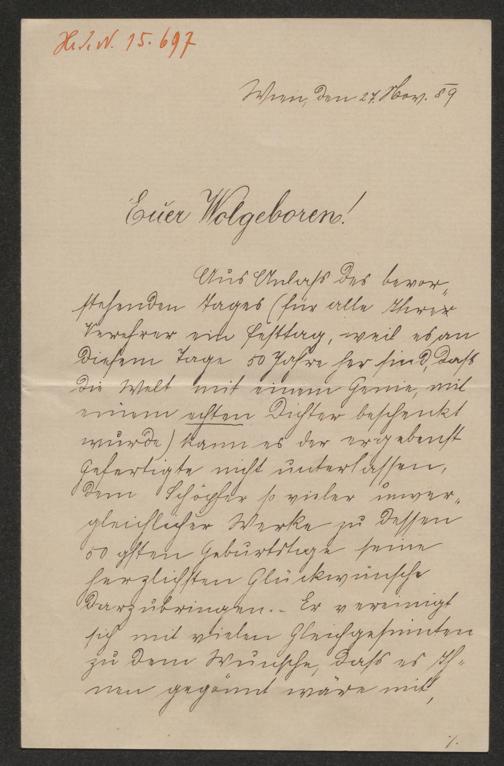 H. I. N. 15.697
Wien, den 27. Nov. 89
Euer Wolgeboren!
Aus Anlaß des bevor-
stehenden Tages (für alle Ihrer
Verehrer ein Festtag, weil es an
diesem Tage 50 Jahre her sind, daß
die Welt mit einem Genie, mit
einem echten Dichter beschenkt
wurde) kann es der ergebenst
Gefertigte nicht unterlassen,
dem Schöpfer so vieler unver-
gleichlicher Werke zu dessen
50 gsten Geburtstage seine
herzlichsten Glückwünsche
darzubringen.- Er vereinigt
sich mit vielen Gleichgesinnten
zu dem Wunsche, daß es Ih-
nen gegönnt wäre mit,
./.